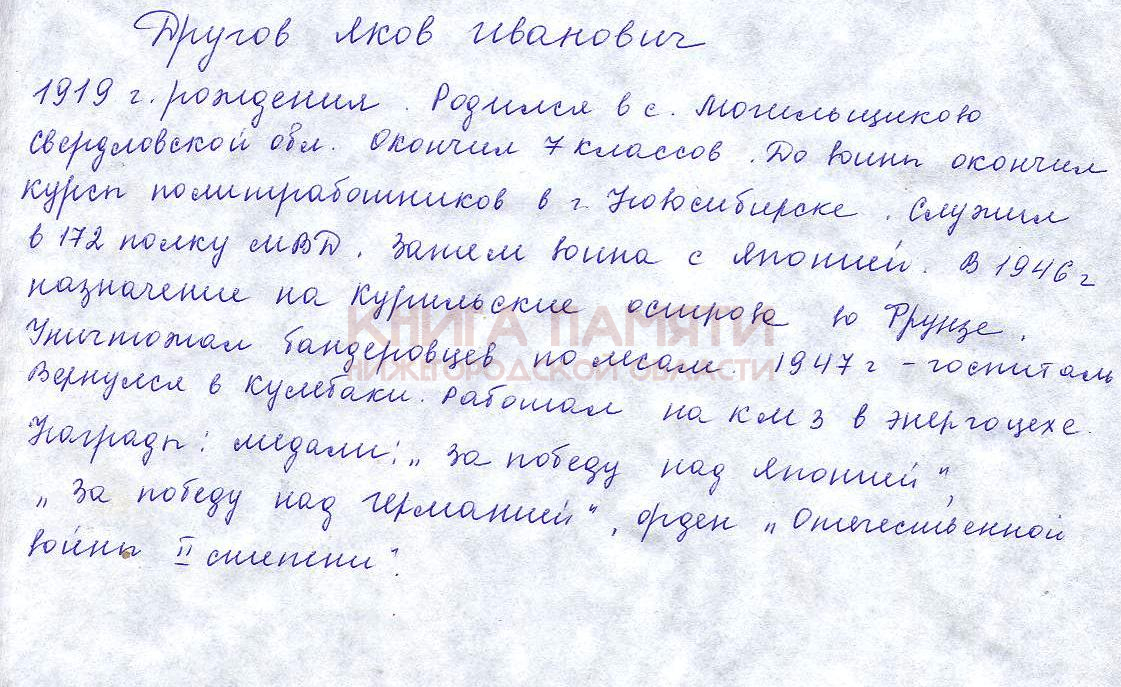 Другов Яков Иванович
1919 г. рождения. Родился в с. Могильщиково
Свердловской обл. Окончил 7 классов. До войны окончил
курсы политработников в г. Новосибирске. Служил
в 172 полку МВД. Затем война с Японией. В 1946 г
назначение на Курильские острова Фрунзе.
КНИГА ПАМЯТИ
Уничтожал бандеровцев по лесам. 1947 г - госпиталь
НИЖЕГОРОДСКОЙ ОБЛАСТИ
Вернулся в Кулебаки. Работал на КМЗ в энергоцехе.
Награды: медали: „За победу над Японией",
„За победу над Германией", орден „Отечественной
войны II степени".